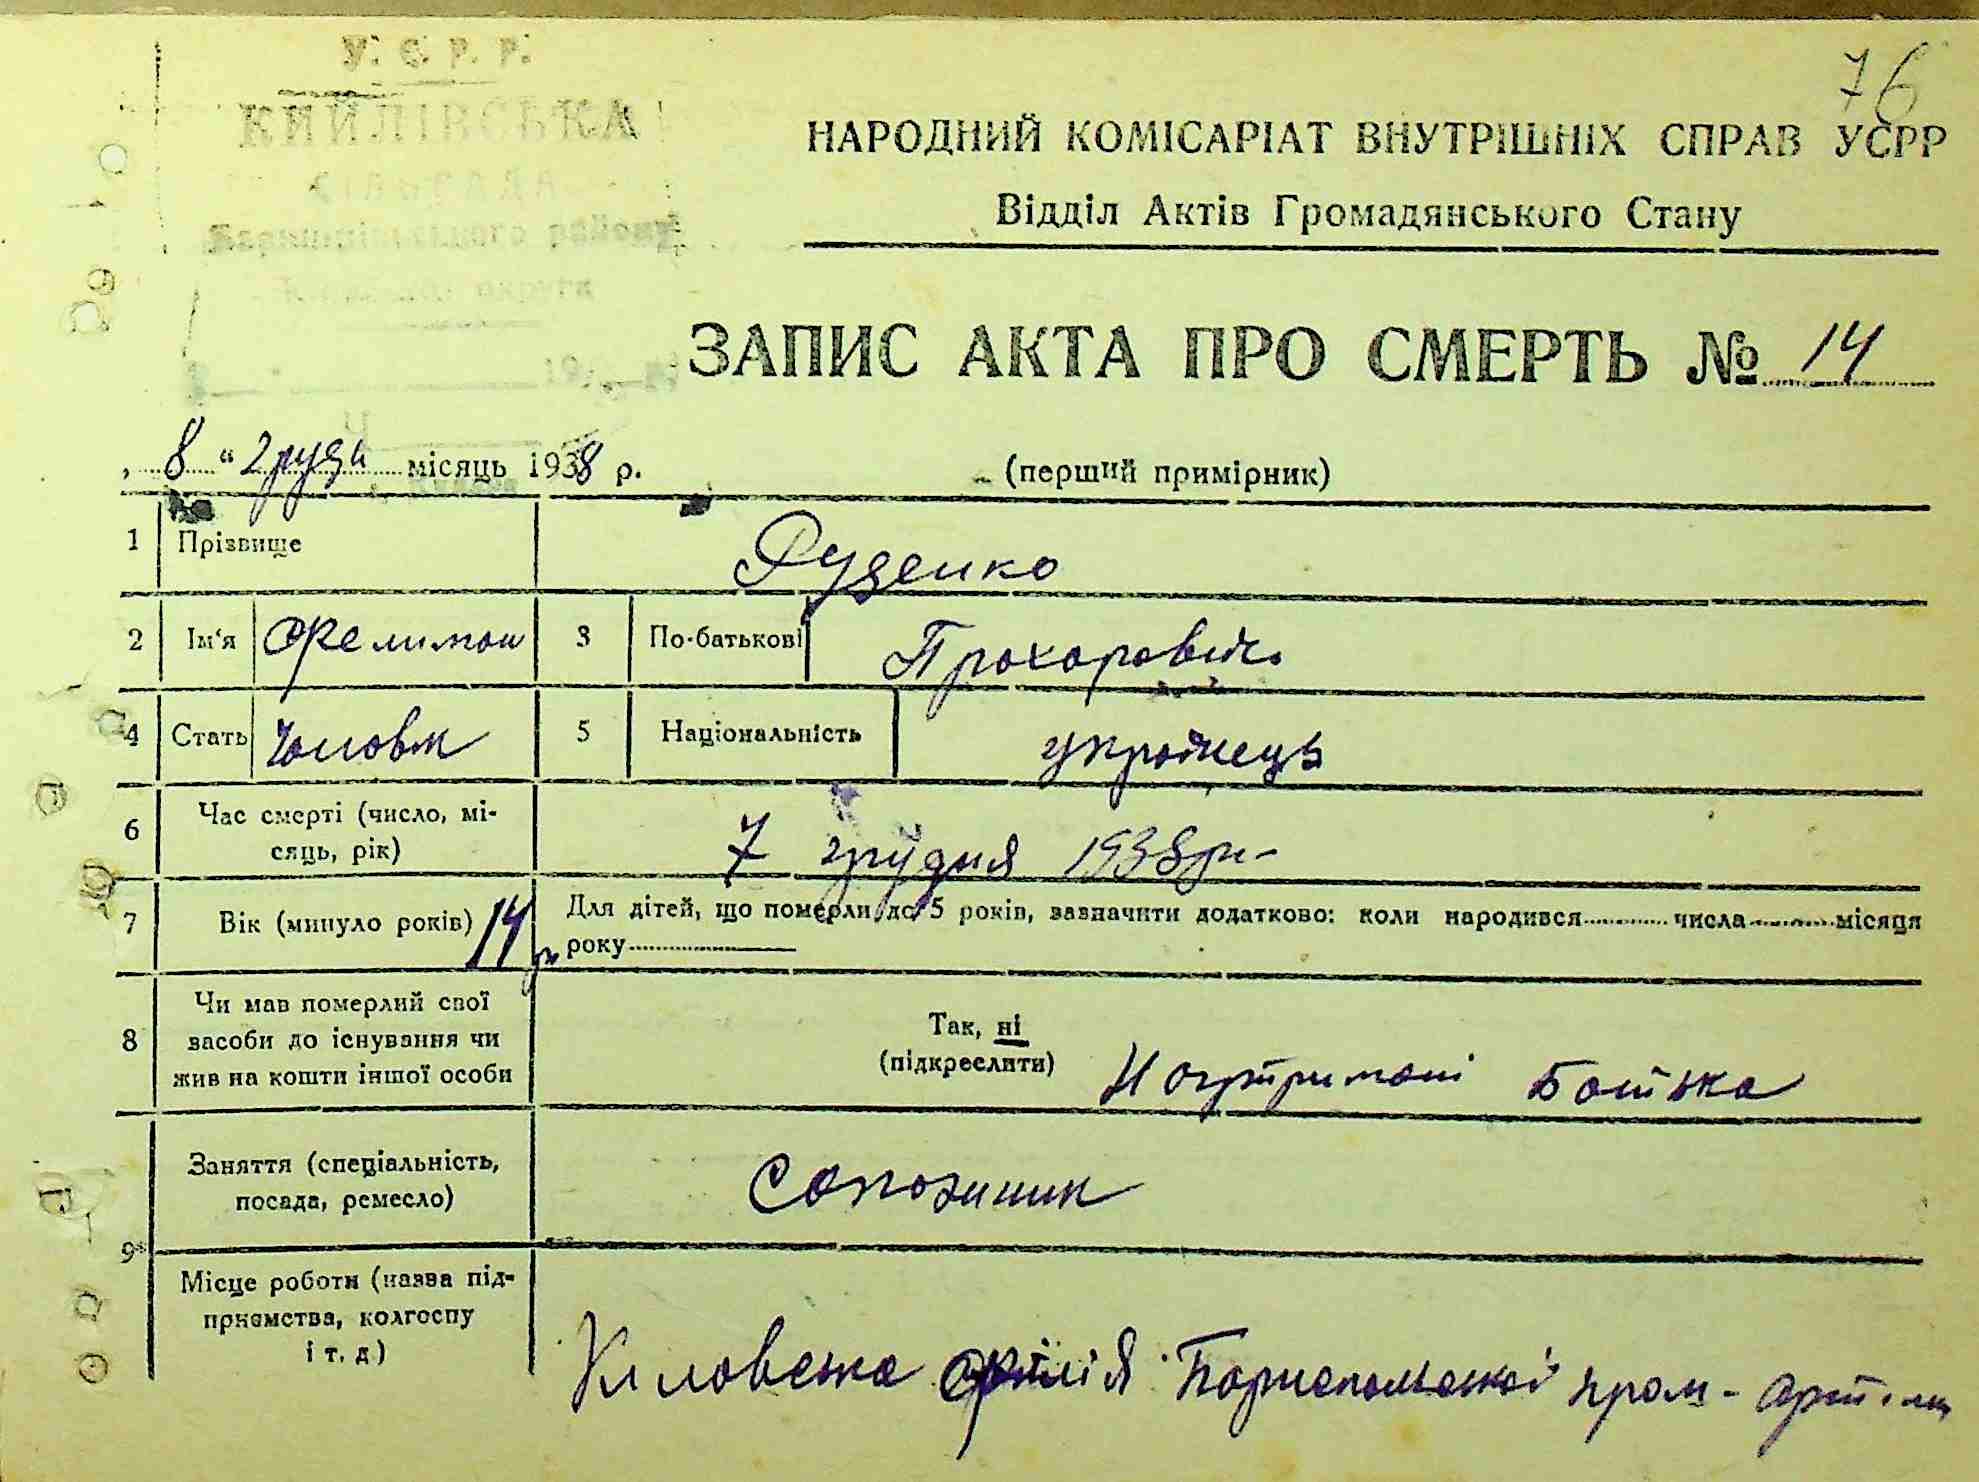 У. С. Р. Р.
76
КИЙЛІВСЬКА
СІЛЬРАДА
НАРОДНИЙ КОМІСАРІАТ ВНУТРІШНІХ СПРАВ УСРР
Відділ Актів Громадянського Стану
району
округи
ЗАПИС АКТА ПРО СМЕРТЬ № 14
19
„ 8 “ груди місяць 1938 р.
(перший примірник)
1 Прізвище Руденко
2 Ім'я Филимон 3 По-батькові Прохорович
4 Стать Чоловік 5 Національність українець
6 Час смерті (число, мі-
сяць, рік) 7 грудня 1938 р
7 Вік (минуло років) 14 р Для дітей, що померли до 5 років, зазначити додатково: коли народився числа місяця
року
8 Чи мав померлий свої
засоби до існування чи
жив на кошти іншої особи
Так, ні
(підкреслити) Батька
9 Заняття (спеціальність,
посада, ремесло) Сапожник
Місце роботи (назва під-
приємства, колгоспу
і т. д.)
філія пром-артіли